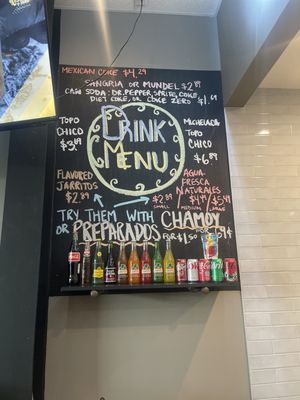 MEXICAN COKE $4.29
SANGRIA OR MUNDEL $2.89
CAN SODA: DR. PEPPER, SPRITE, COKE,
DIET COKE, OR COKE ZERO $1.
TOPO
CHICO
DRINK
MENU
MICHELADA
TOPO
CHICO
FLAVORED
JARRITOS
$2.89
AGUA
FRESCA
NATURALES
$2.89
SMALL
MEDIUM
TRY THEM WITH CHAMOY
OR PREPARADOS